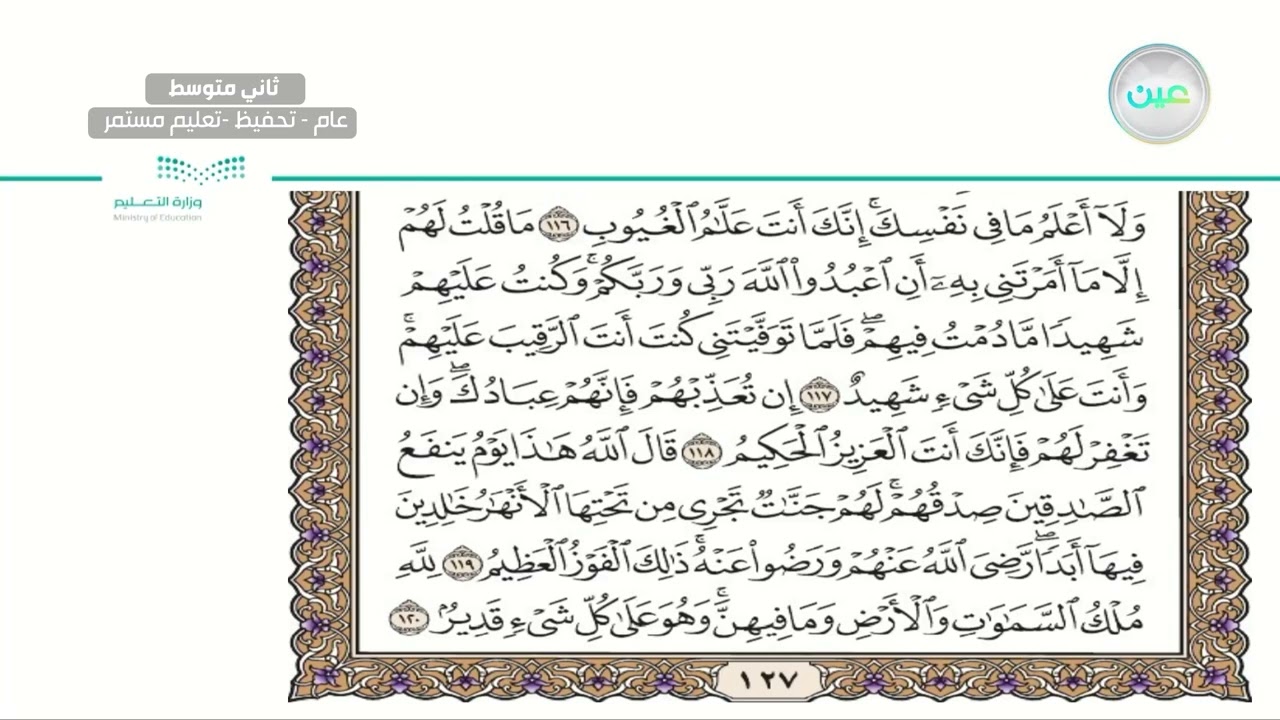 ثاني متوسط
عام - تحفيظ -تعليم مستمر
عين
وزارة التعـــليم
Ministry of Education
وَلَآ أَعۡلَمُ مَا فِي نَفۡسِكَۚ إِنَّكَ أَنتَ عَلَّٰمُ ٱلۡغُيُوبِ ١١٦ مَا قُلۡتُ لَهُمۡ
إِلَّا مَآ أَمَرۡتَنِي بِهِۦٓ أَنِ ٱعۡبُدُواْ ٱللَّهَ رَبِّي وَرَبَّكُمۡۚ وَكُنتُ عَلَيۡهِمۡ
شَهِيدٗا مَّا دُمۡتُ فِيهِمۡۖ فَلَمَّا تَوَفَّيۡتَنِي كُنتَ أَنتَ ٱلرَّقِيبَ عَلَيۡهِمۡۚ
وَأَنتَ عَلَىٰ كُلِّ شَيۡءٖ شَهِيدٌ ١١٧ إِن تُعَذِّبۡهُمۡ فَإِنَّهُمۡ عِبَادُكَۖ وَإِن
تَغۡفِرۡ لَهُمۡ فَإِنَّكَ أَنتَ ٱلۡعَزِيزُ ٱلۡحَكِيمُ ١١٨ قَالَ ٱللَّهُ هَٰذَا يَوۡمُ يَنفَعُ
ٱلصَّٰدِقِينَ صِدۡقُهُمۡۚ لَهُمۡ جَنَّٰتٞ تَجۡرِي مِن تَحۡتِهَا ٱلۡأَنۡهَٰرُ خَٰلِدِينَ
فِيهَآ أَبَدٗاۖ رَّضِيَ ٱللَّهُ عَنۡهُمۡ وَرَضُواْ عَنۡهُۚ ذَٰلِكَ ٱلۡفَوۡزُ ٱلۡعَظِيمُ ١١٩ لِلَّهِ
مُلۡكُ ٱلسَّمَٰوَٰتِ وَٱلۡأَرۡضِ وَمَا فِيهِنَّۚ وَهُوَ عَلَىٰ كُلِّ شَيۡءٖ قَدِيرُۢ ١٢٠
١٢٧